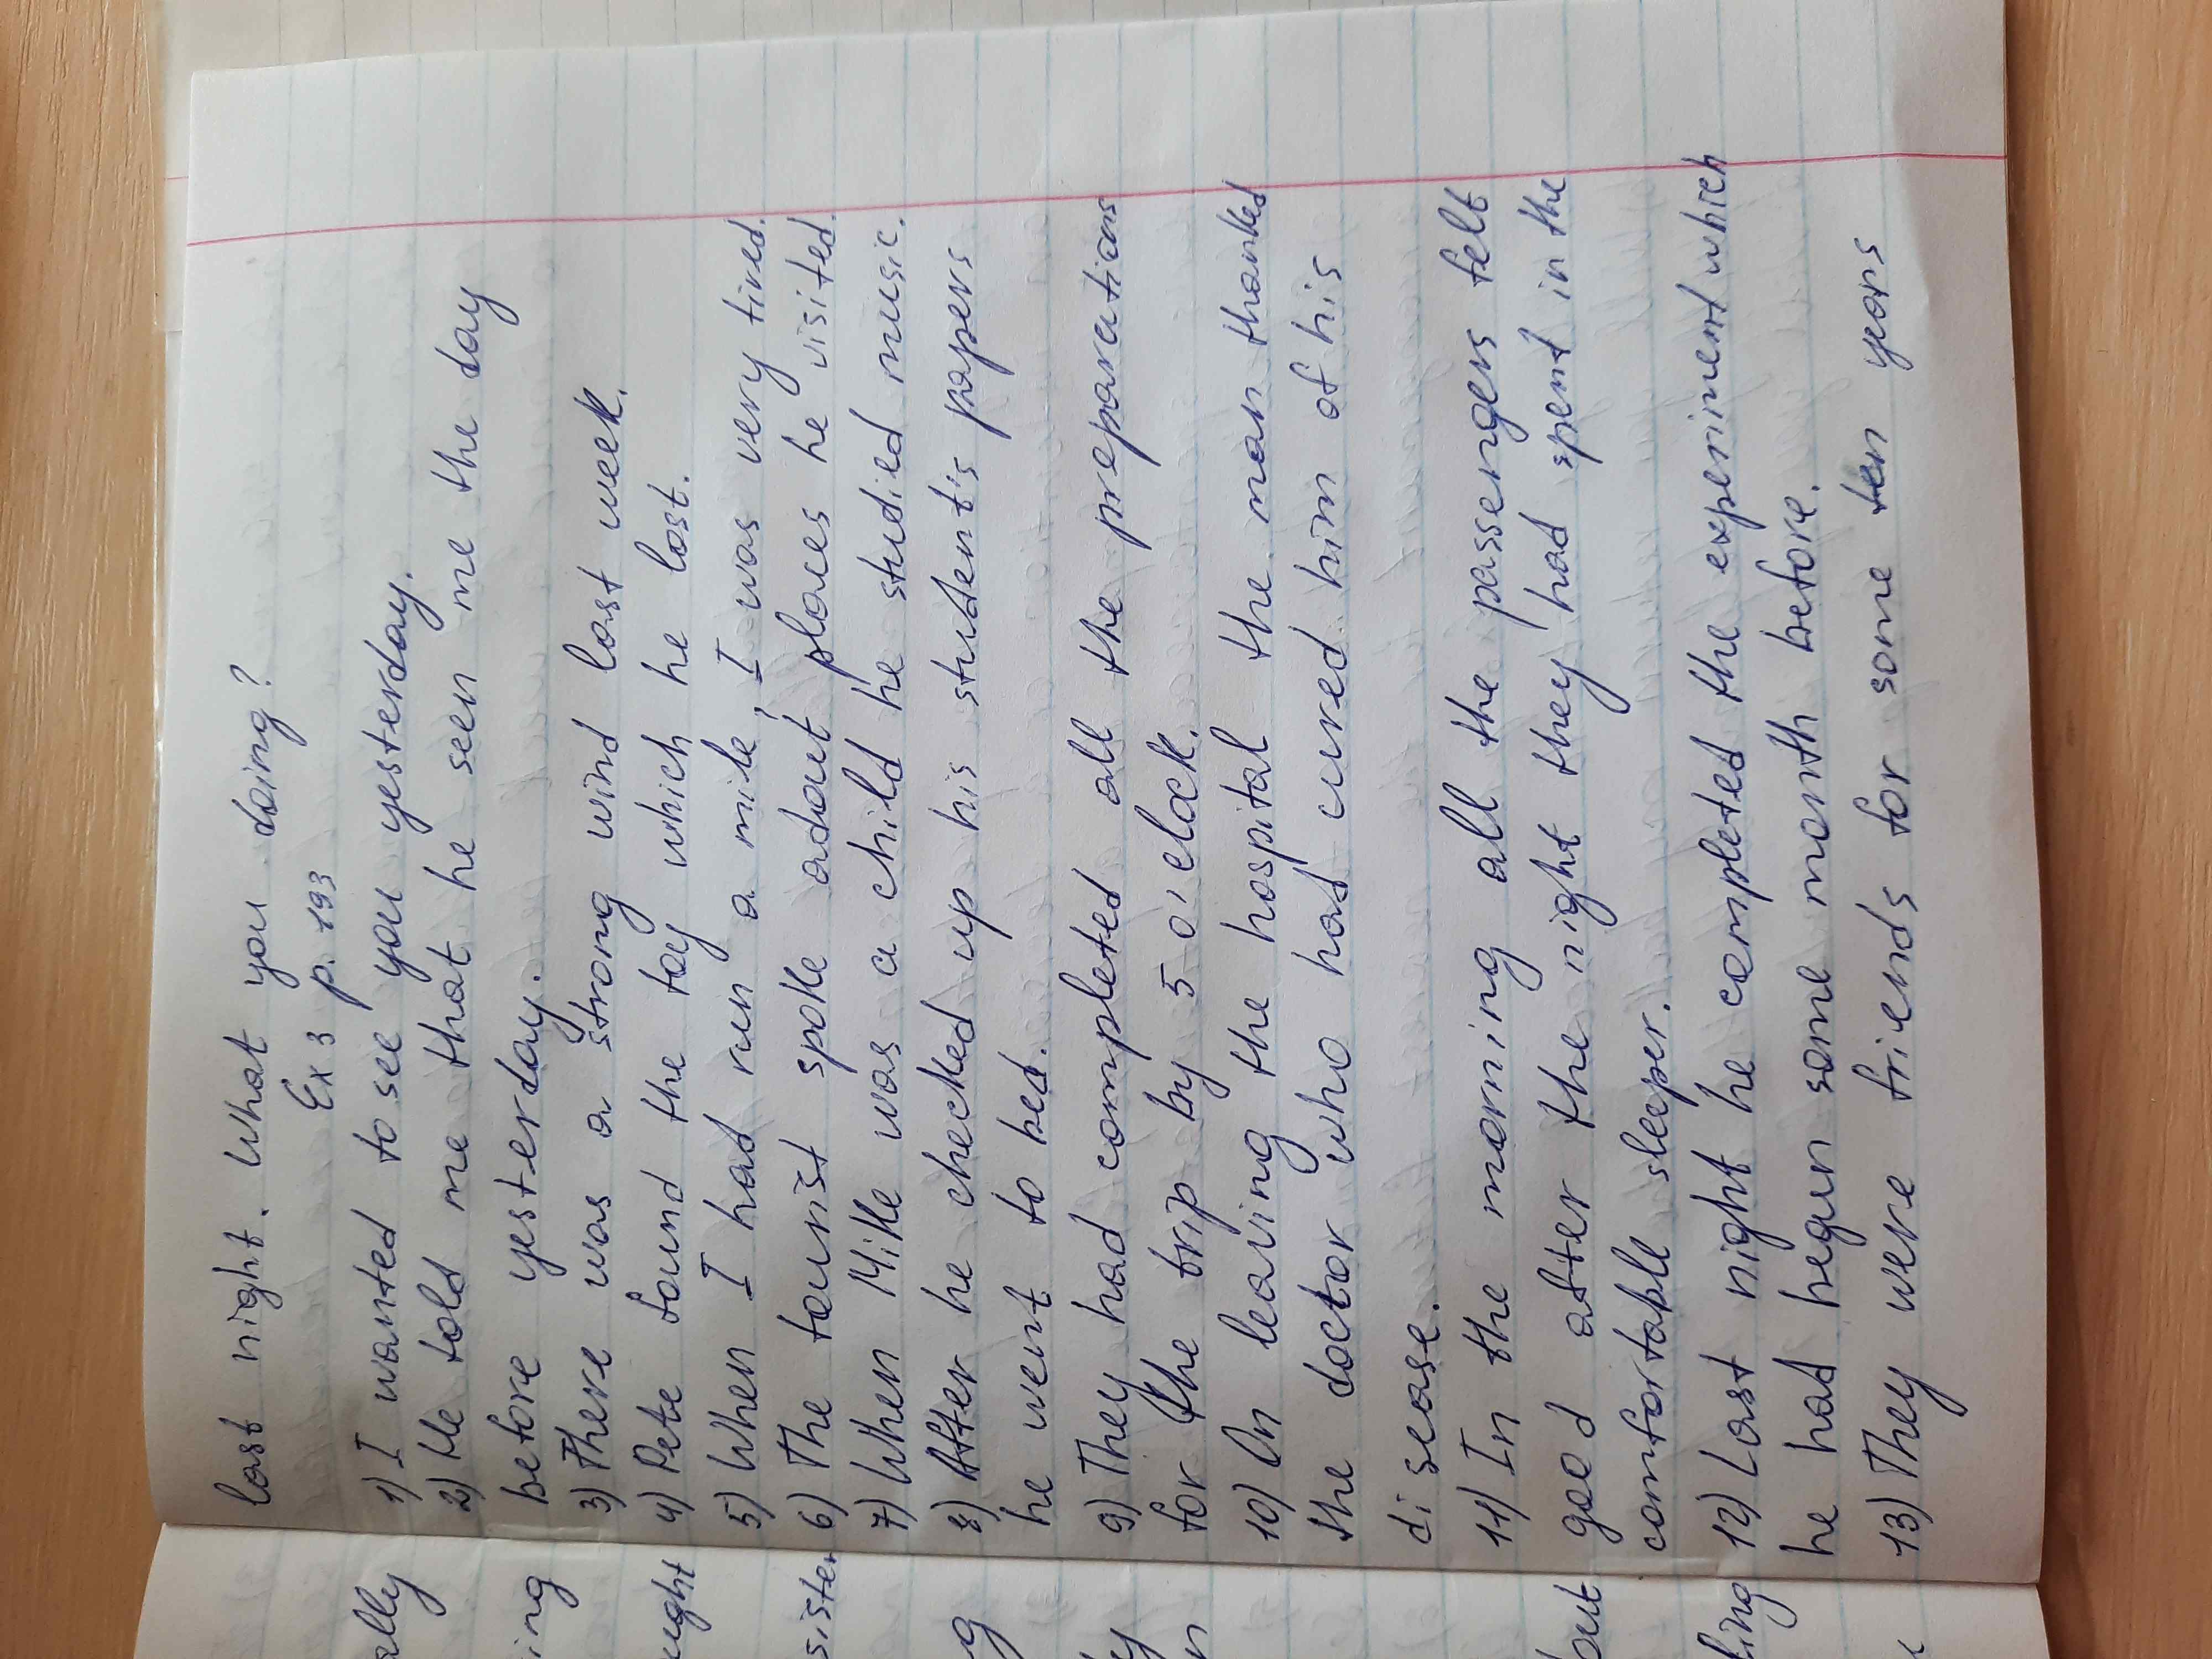 last night. What you doing?
Ex 3 p. 193
1) I wanted to see you yesterday.
2) He told me that he seen me the day
before yesterday.
3) There was a strong wind last week.
4) Pete found the toy which he lost.
5) When I had run a mile, I was very tired.
6) The tourist spoke about places he visited.
7) When Mike was a child he studied music.
8) After he checked up his student's papers
he went to bed.
9) They had completed all the preparations
for the trip by 5 o'clock.
10) On leaving the hospital the man thanked
the doctor who had cured him of his
disease.
11) In the morning all the passengers felt
good after the night they had spent in the
comfortable sleeper.
12) Last night he completed the experiment which
he had begun some month before.
13) They were friends for some ten years
ally
ing
ught
sister
g
y
n
but
ling